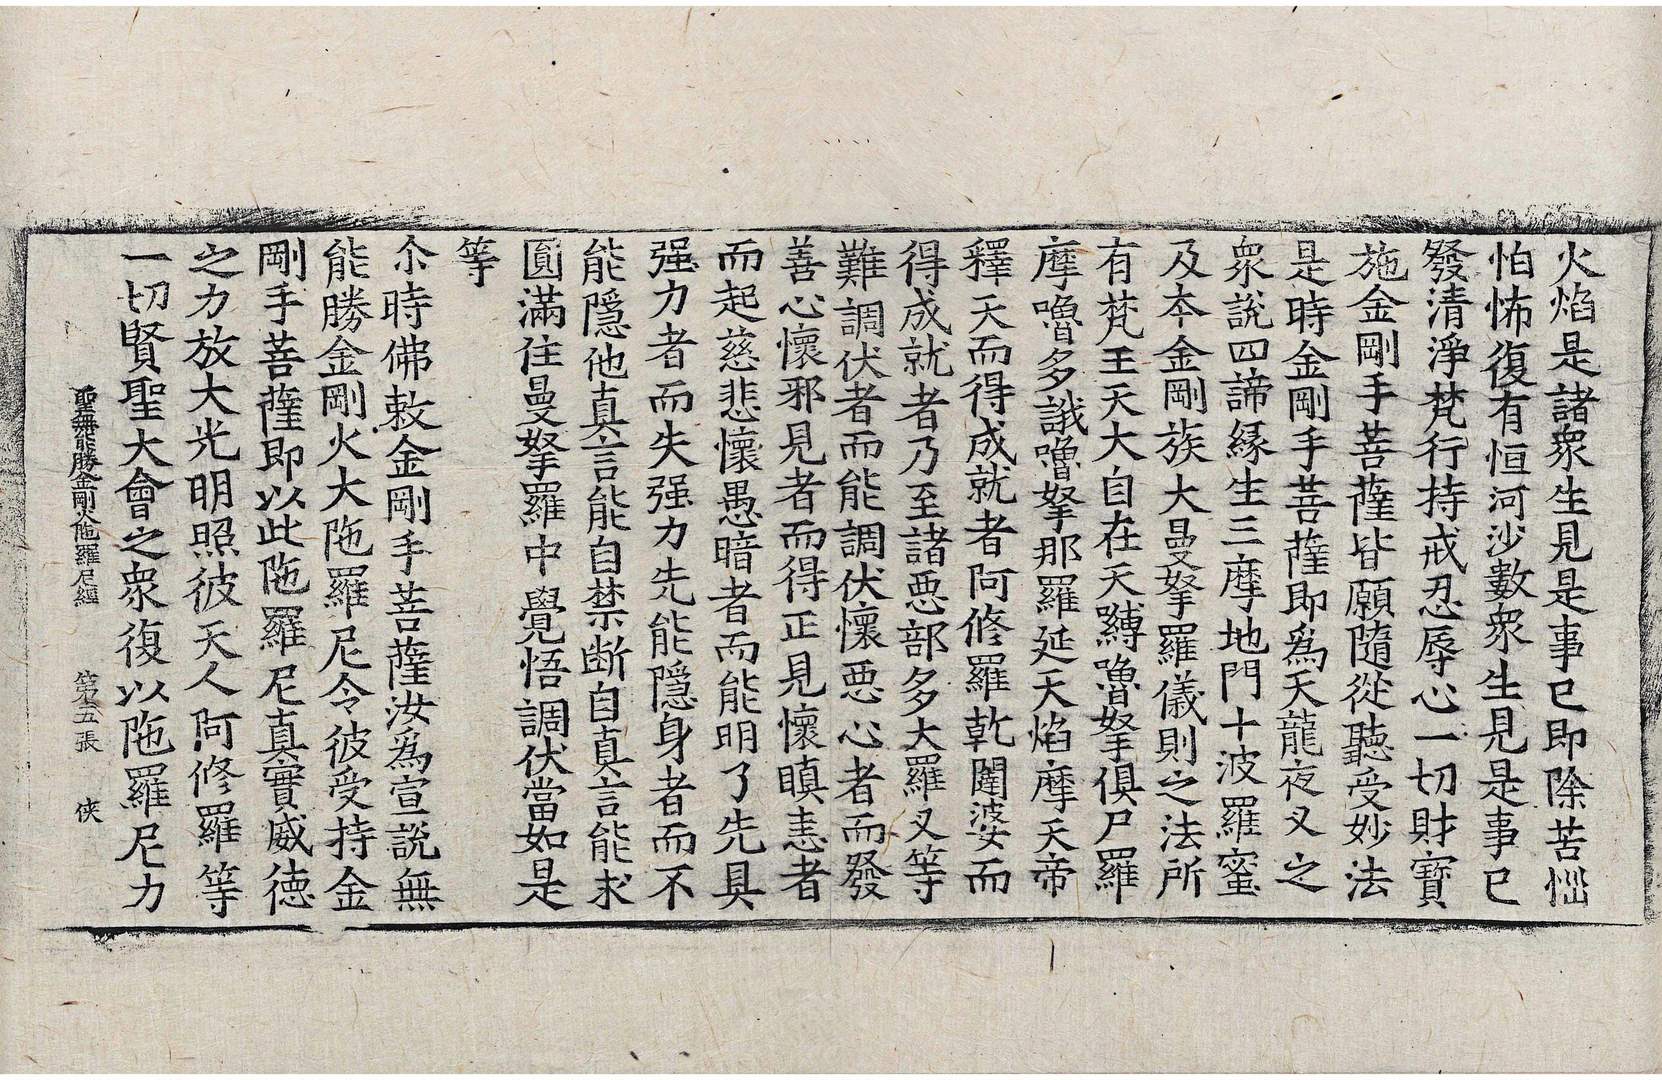 火焰是諸衆生見是事已即除苦惱
怕怖復有恒河沙數衆生見是事已
發清淨梵行持戒忍辱心一切財寶
施金剛手菩薩皆願隨從聽受妙法
是時金剛手菩薩即爲天龍夜叉之
衆說四諦緣生三摩地門十波羅蜜
及本金剛族大曼拏羅儀則之法所
有梵王天大自在天嚩嚕拏俱尸羅
摩嚕多誐嚕拏那羅延天焰摩天帝
釋天而得成就者阿修羅乾闥婆而
得成就者乃至諸惡部多大羅叉等
難調伏者而能調伏懷惡心者而發
善心懷邪見者而得正見懷瞋恚者
而起慈悲懷愚暗者而能明了先具
强力者而失强力先能隱身者而不
能隱他真言能自禁断自真言能求
圓滿住曼拏羅中覺悟調伏當如是
等
尒時佛敕金剛手菩薩汝爲宣說無
能勝金剛火大陁羅尼令彼受持金
剛手菩薩即以此陁羅尼真實威德
之力放大光明照彼天人阿修羅等
一切賢聖大會之衆復以陁羅尼力
聖無能勝金剛火陁羅尼經 第五張 俠